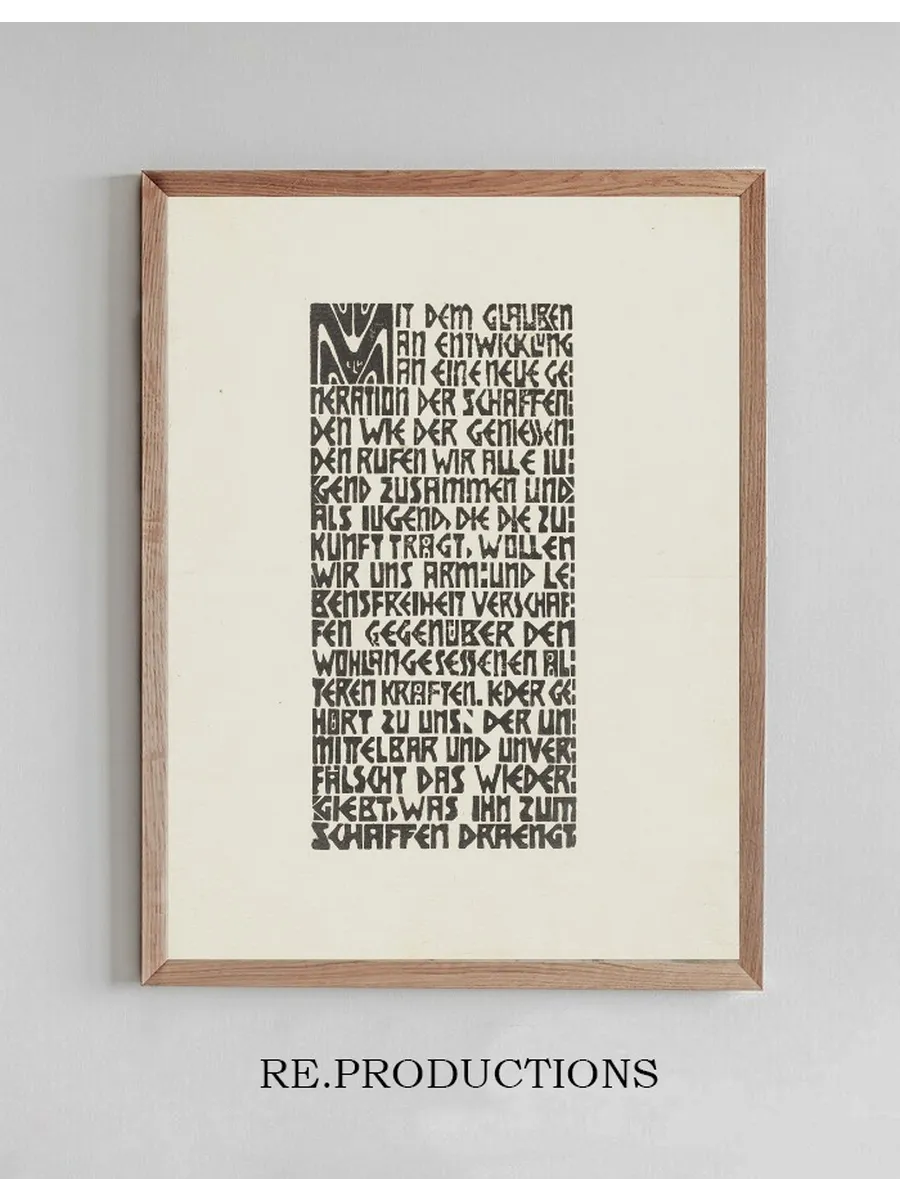 MIT DEM GLAUBEN
AN ENTWICKLUNG
AN EINE NEUE GE:
NERATION DER SCHAFFEN:
DEN WIE DER GENIESSEN:
DEN RUFEN WIR ALLE IU:
GEND ZUSAMMEN UND
ALS IUGEND, DIE DIE ZU:
KUNFT TRÄGT, WOLLEN
WIR UNS ARM: UND LE:
BENSFREIHEIT VERSCHAF:
FEN GEGENÜBER DEN
WOHLANGESESSENEN ÄL:
TEREN KRÄFTEN. IEDER GE:
HÖRT ZU UNS, DER UN:
MITTELBAR UND UNVER:
FÄLSCHT DAS WIEDER:
GIEBT, WAS IHN ZUM
SCHAFFEN DRAENGT
RE.PRODUCTIONS